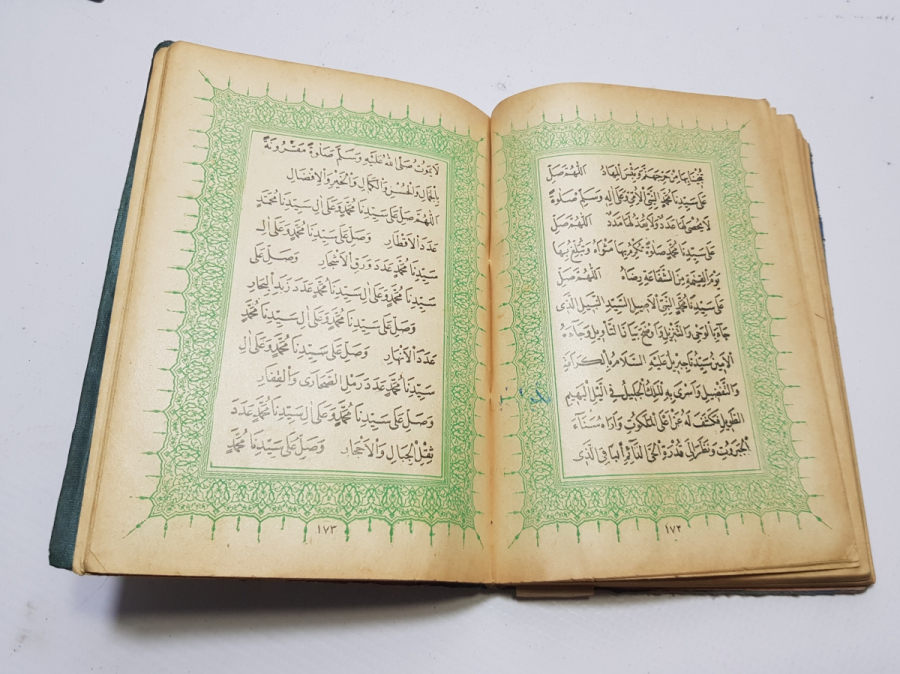 بِهَا مِنْ جَهَنَّمَ وَبِئْسَ الْمِهَادُ اَللّٰهُمَّ صَلِّ
عَلٰى سَيِّدِنَا مُحَمَّدٍ النَّبِيِّ الْاُمِّيِّ وَعَلٰى اٰلِهِ وَسَلِّمْ صَلٰوةً
لَا يُحْصٰى لَهَا عَدَدٌ وَلَا يُعَدُّ لَهَا مَدَدٌ اَللّٰهُمَّ صَلِّ
عَلٰى سَيِّدِنَا مُحَمَّدٍ صَلٰوةً تُكَرِّمُ بِهَا مَثْوَاهُ وَتُبَلِّغُ بِهَا
يَوْمَ الْقِيٰمَةِ مِنَ الشَّفَاعَةِ رِضَاهُ اَللّٰهُمَّ صَلِّ
عَلٰى سَيِّدِنَا مُحَمَّدٍ النَّبِيِّ الْاَصِيلِ السَّيِّدِ النَّبِيلِ الَّذِي
جَاءَ بِالْوَحْيِ وَالتَّنْزِيلِ وَاَوْضَحَ بَيَانَ التَّأْوِيلِ وَجَاءَهُ
الْاَمِينُ سَيِّدُنَا جِبْرِيلُ عَلَيْهِ السَّلَامُ بِالْكَرَامَةِ
وَالتَّفْضِيلِ وَاَسْرٰى بِهِ الْمَلِكُ الْجَلِيلُ فِي الَّيْلِ الْبَهِيمِ
الطَّوِيلِ فَكَشَفَ لَهُ عَنْ اَعْلَى الْمَلَكُوتِ وَاَرَاهُ سَنَاءَ
الْجَبَرُوتِ وَنَظَرَ اِلٰى قُدْرَةِ الْحَيِّ الدَّائِمِ الْبَاقِي الَّذِي
١٧٢
لَا يَمُوتُ صَلَّى اللهُ عَلَيْهِ وَسَلَّمَ صَلٰوةً مَقْرُونَةً
بِالْجَمَالِ وَالْحُسْنِ وَالْكَمَالِ وَالْخَيْرِ وَالْاِفْضَالِ
اَللّٰهُمَّ صَلِّ عَلٰى سَيِّدِنَا مُحَمَّدٍ وَعَلٰى اٰلِ سَيِّدِنَا مُحَمَّدٍ
عَدَدَ الْاَقْطَارِ وَصَلِّ عَلٰى سَيِّدِنَا مُحَمَّدٍ وَعَلٰى اٰلِ
سَيِّدِنَا مُحَمَّدٍ عَدَدَ وَرَقِ الْاَشْجَارِ وَصَلِّ عَلٰى
سَيِّدِنَا مُحَمَّدٍ وَعَلٰى اٰلِ سَيِّدِنَا مُحَمَّدٍ عَدَدَ زَبَدِ الْبِحَارِ
وَصَلِّ عَلٰى سَيِّدِنَا مُحَمَّدٍ وَعَلٰى اٰلِ سَيِّدِنَا مُحَمَّدٍ
عَدَدَ الْاَنْهَارِ وَصَلِّ عَلٰى سَيِّدِنَا مُحَمَّدٍ وَعَلٰى اٰلِ
سَيِّدِنَا مُحَمَّدٍ عَدَدَ رَمْلِ الصَّحَارٰى وَالْقِفَارِ
وَصَلِّ عَلٰى سَيِّدِنَا مُحَمَّدٍ وَعَلٰى اٰلِ سَيِّدِنَا مُحَمَّدٍ عَدَدَ
ثِقْلِ الْجِبَالِ وَالْاَحْجَارِ وَصَلِّ عَلٰى سَيِّدِنَا مُحَمَّدٍ
١٧٣